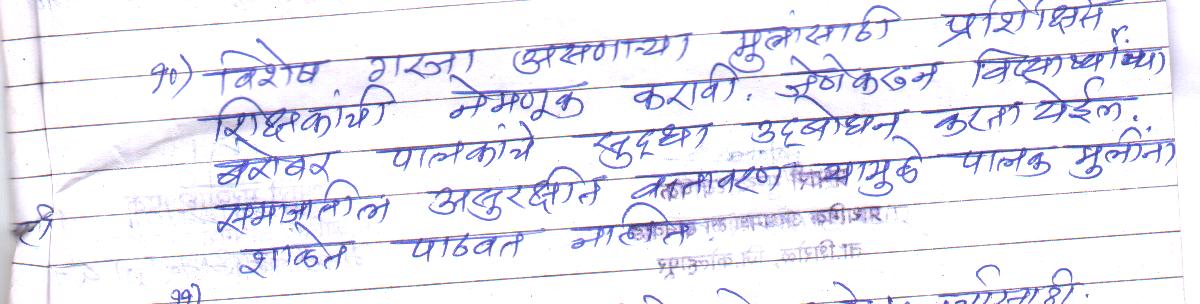 १०) विशेष गरजा असणाऱ्या मुलांसाठी प्रशिक्षित
शिक्षकांची नेमणूक करावी. जेणेकरुन विद्यार्थ्यांच्या
बरोबर पालकांचे सुद्धा उद्बोधन करता येईल.
समाजातील असुरक्षीत वातावरण यामुळे पालक मुलींना
शाळेत पाठवत नाहीत.
११)